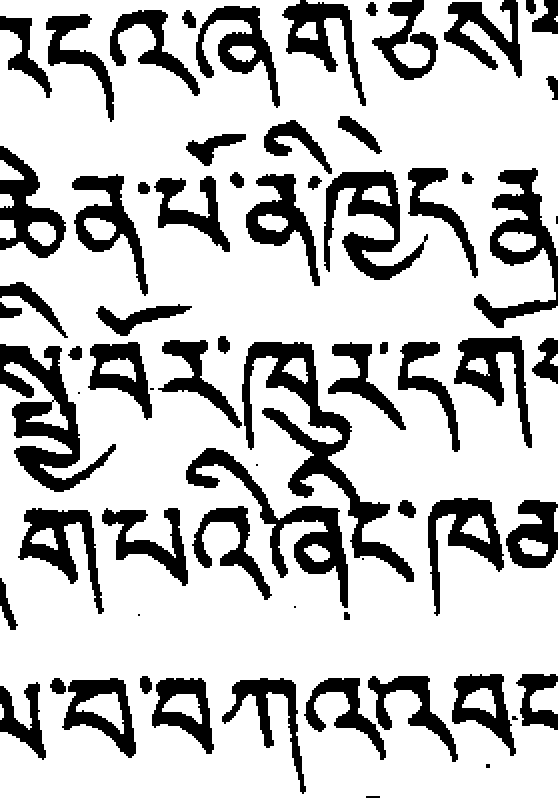 རདའ་ཞག་ཅས་
ཆེན་པོ་ནི་ཁྱེད་རྣ
སྤྱི་བོར་ཁུར་དགོ
ག་པའི་ཞིང་ཁམ
ལ་བ་བཀའ་འབང